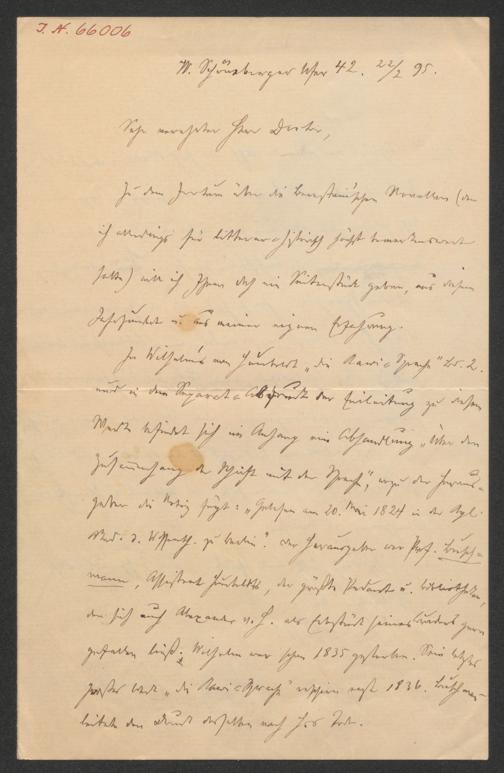 J. N. 66006
W. Schöneberger Ufer 42. 22/2 95.
Sehr verehrter Herr Doctor,
Zu dem Irrtum über die Novellen (den
ich allerdings für litterar-historisch höchst bemerkenswert
halte) will ich Ihnen doch ein Seitenstück geben, aus diesem
Jahrhundert u. aus meiner eignen Erfahrung.
In Wilhelm's von Humboldt „die Kawi-Sprache" Bd. 2.
und in dem Separat-Abdruck der Einleitung zu diesem
Werke befindet sich im Anhang eine Abhandlung „Über den
Zusammenhang der Schrift mit der Sprache", wozu der Heraus-
geber die Notiz fügt: „Gelesen am 20. Mai 1824 in der Kgl.
Akad. d. Wissensch. zu Berlin". Der Herausgeber war Prof. Busch-
mann, Assistent Humboldts, der größte Pedant u. Bibliothekar,
den sich auch Alexander v. H. als Erbstück seines Bruders gern
gefallen ließ; Wilhelm war schon 1835 gestorben. Sein letztes
großes Werk „die Kawi-Sprache" erschien erst 1836. Buschmann
leitete den Druck desselben nach Tode.